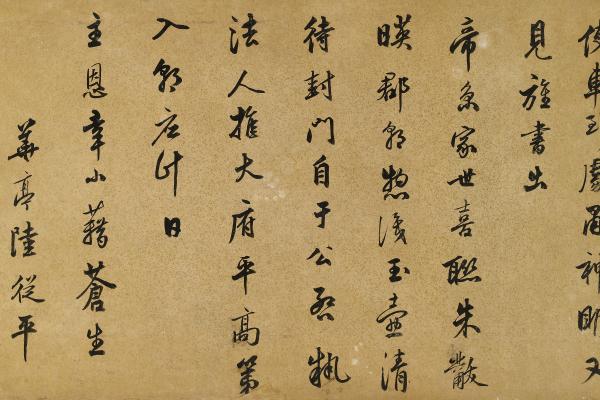 停車到處留神明又
見旌書出
帝京家世喜聯朱黻
暎郡朝惣玉壺清
待封門自于公啓執
法人推大府平高第
入朝應計日
主恩小藉蒼生
華亭陸從平